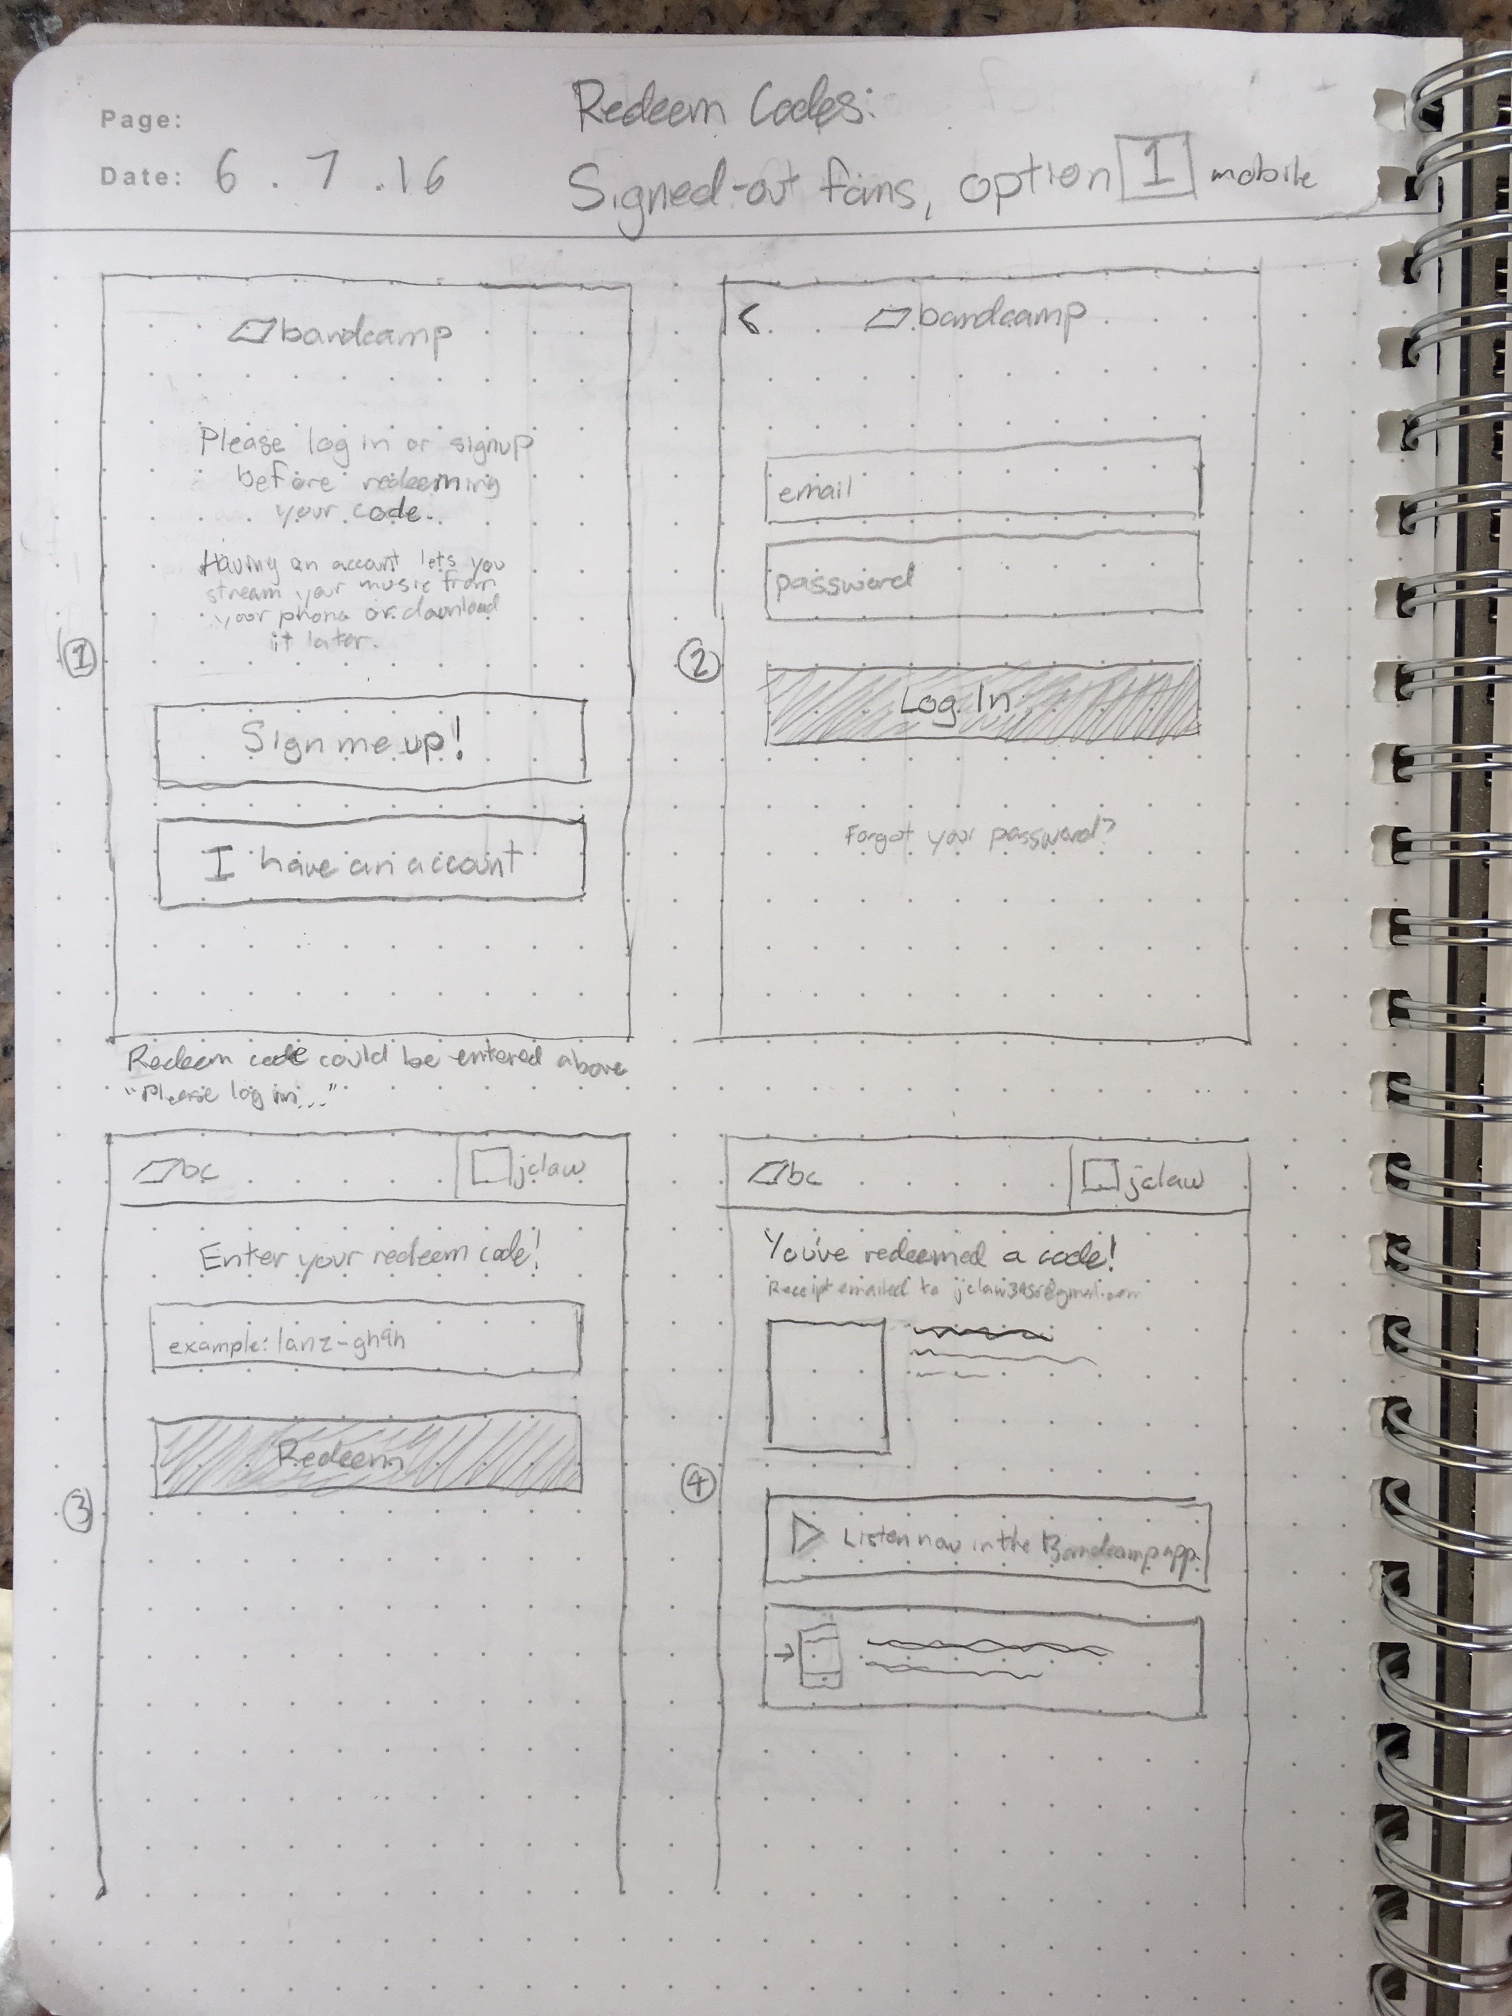 Page:
Redeem Codes:
Date: 6.7.16
Signed-out fans, option 1 mobile
bandcamp
Please log in or signup
before redeeming
your code.
Having an account lets you
stream your music from
your phone or download
it later.
1
Sign me up!
I have an account
Redeem code could be entered above
"Please log in..."
<
bandcamp
email
password
2
Log In
Forgot your password?
bc
jclaw
Enter your redeem code!
example: lanz-gh9h
Redeem
3
bc
jclaw
You've redeemed a code!
Receipt emailed to
4
Listen now in the Bandcamp app.